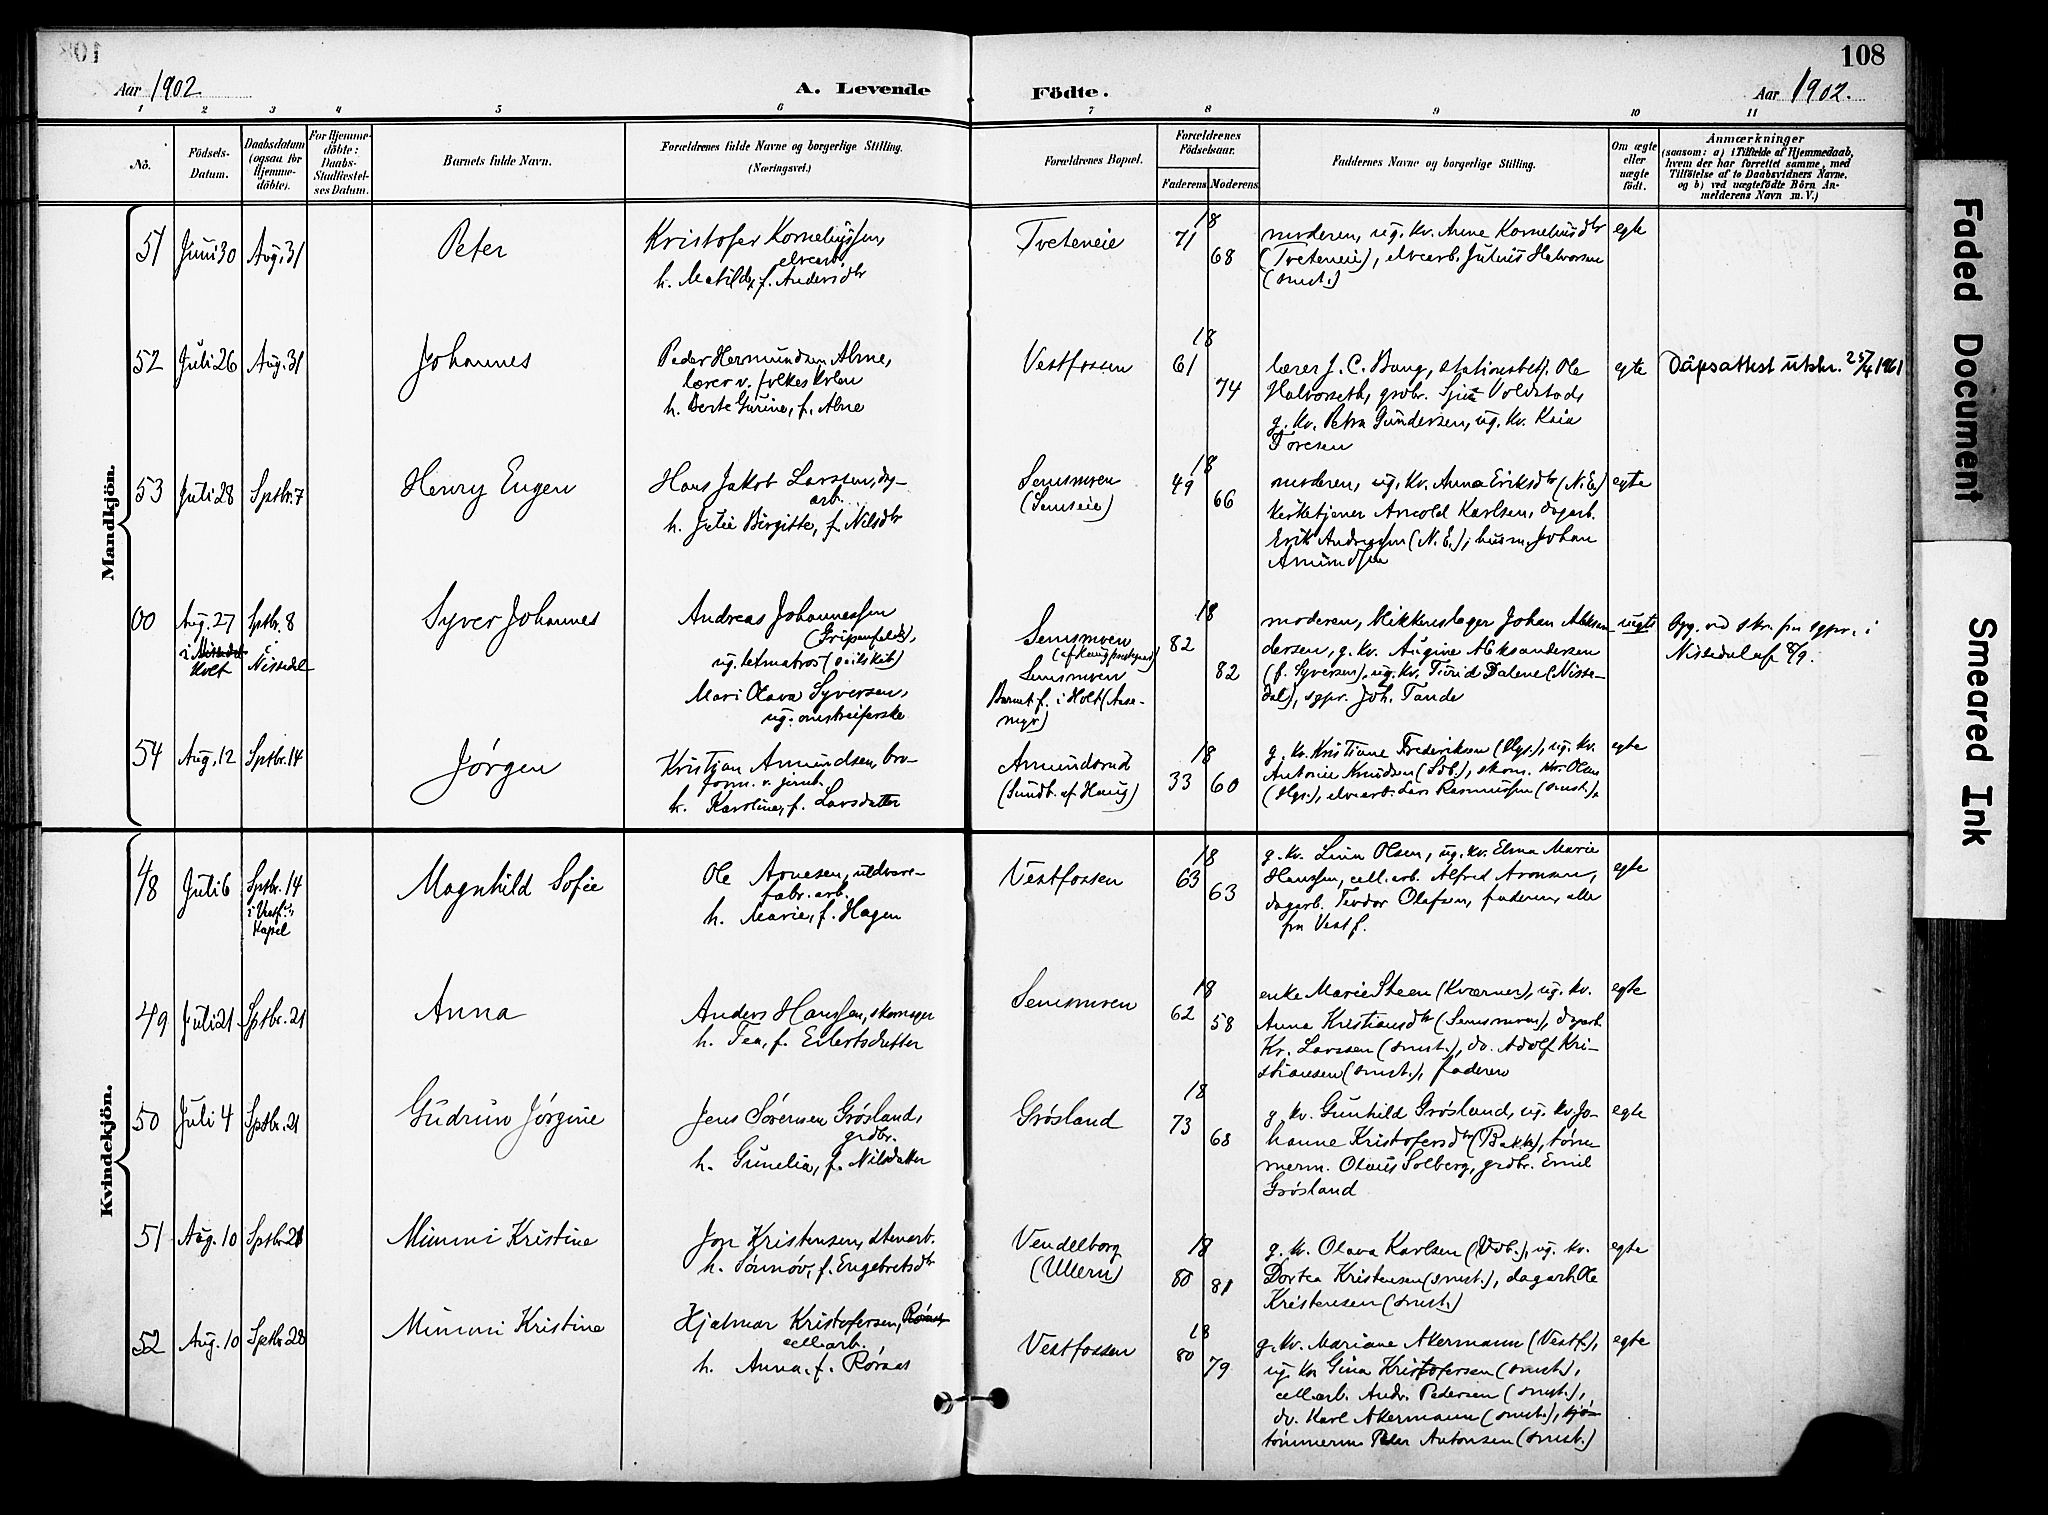 108
Aar 1902
A. Levende
Födte.
Aar 1902.
1 2 3 4 5 6 7 8 9 10 11
No.
Födsels-
Datum.
Daabsdatum
(ogsaa for
Hjemme-
döbte).
For Hjemme-
döbte:
Daabs-
Stadfæstel-
ses Datum.
Barnets fulde Navn.
Forældrenes fulde Navne og borgerlige Stilling.
(Næringsvei.)
Forældrenes Bopæl.
Forældrenes
Födselsaar.
Faderens. Moderens.
Faddernes Navne og borgerlige Stilling.
Om ægte
eller
uægte
födt.
Anmærkninger
(saasom: a) i Tilfælde af Hjemmedaab,
hvem der har forrettet samme, med
Tilföielse af to Daabsvidners Navne.
og b) ved uægtefödte Börn An-
melderens Navn m. V.)
Mandkjön.
51 Juni 30 Aug. 31 Peter
Kristofer Kornelyssen,
elvearb.
h. Matilde, f. Andersdtr
Tveteneie
18
71
68
moderen, ug. kv. Anne Korneliusdtr
(Tveteneie), elvearb. Julius Halvorsen
(smst.)
egte
52 Juli 26 Aug. 31 Johannes
Peder Hermundsen Alme,
lærer v. folkeskolen
h. Berte Gurine, f. Alme
Vestfossen
18
61
74
lærer J. C. Bang, stationsbetj. Ole
Halvorseth, grdbr. Voldstad,
g. kv. Petra Gundersen, ug. kv. Kaia
Toresen
egte
Dåpsattest utskr. 25/4 1961
53 Juli 28 Sptbr. 7 Henry Eugen
Hans Jakob Larssen, dg-
arb.
h. Julie Birgitte, f. Nilsdtr
Semsmoen
(Semseie)
18
49
66
moderen, ug. kv. Anna Eriksdtr (N.E.)
kirketjener Arnold Karlsen, dagarb.
Erik Andreassen (N.E.), husm. Johan
Amundsen
egte
00 Aug. 27
i
Holt
Sptbr. 8
i
Nissedal
Syver Johannes
Andreas Johannessen
(Gripenfeldt),
ug. letmatros (seilskib)
Mari Olava Syversen,
ug. omstreiferske
Semsmoen
(af Haug prestegjeld)
Semsmoen
Barnet f. i Holt (Aase-
myr)
18
82
82
moderen, blikkenslager Johan Aleksan-
dersen, g. kv. Augine Aleksandersen
(f. Syversen), ug. kv. Turid Dalene (Nisse-
dal), sgpr. Joh. Tande
uegte
Opg. ved skr. fra sgpr. i
Nissedal af 8/9.
54 Aug. 12 Sptbr. 14 Jørgen
Kristjan Amundsen, bro-
form. v. jernb.
h. Karoline, f. Larsdatter
Amundsrud
(Sundb. af Haug)
18
33 60
g. kv. Kristiane Frederiksen (Hgs.), ug. kv.
Antonie Knudsen (Sdb.), skom. Kr. Olsen
(Hgs.), elvearb. Lars Rasmussen (smst.),
egte
Kvindekjön.
48 Juli 6 Sptbr. 14
i Vestf.
kapel
Magnhild Sofie
Ole Arnesen, uldvare-
fabr. arb.
h. Marie, f. Hagen
Vestfossen
18
63
63
g. kv. Lina Olsen, ug. kv. Elma Marie
Hanssen, cell. arb. Alfred Aronsen,
dagarb. Teodor Olafsen, faderen, alle
fra Vestf.
egte
49 Juli 21 Sptbr. 21 Anna
Anders Hanssen, skomager
h. Tea, f. Eilertsdatter
Semsmoen
18
62
58
enke Marie Steen (Kværner), ug. kv.
Anna Kristiansdtr (Semsmoen), dgarb.
Kr. Larssen (smst.), do. Adolf Kri-
stiansen (smst.), faderen
egte
50 Juli 4 Sptbr. 21 Gudrun Jørgine
Jens Sørensen Grøsland,
grdbr.
h. Gunelia, f. Nilsdatter
Grøsland
18
73
68
g. kv. Gunhild Grøsland, ug. kv. Jo-
hanne Kristofersdtr (Bakk), tøm-
merm. Olaus Solberg, grdbr. Emil
Grøsland
egte
51 Aug. 10 Sptbr. 28 Mimmi Kristine
Jon Kristensen, stenarb.
h. Tønnøv, f. Engebretsdtr
Vendelborg
(Ullern)
18
80 81
g. kv. Olava Karlsen (Vdb.), ug. kv.
Dortea Kristensen (smst.), dagarb. Ole
Kristensen (smst.)
egte
52 Aug. 10 Sptbr. 28 Mimmi Kristine
Hjalmar Kristofersen, Røraas
cell. arb.
h. Anna, f. Røraas
Vestfossen
18
80
79
g. kv. Mariane Akermann (Vestf.),
ug. kv. Gina Kristofersen (smst.),
cell. arb. Andr. Pedersen (smst.),
do. Karl Akermann (smst.),
tømmerm. Peder Antonsen (smst.)
egte
Faded Document
Smeared Ink